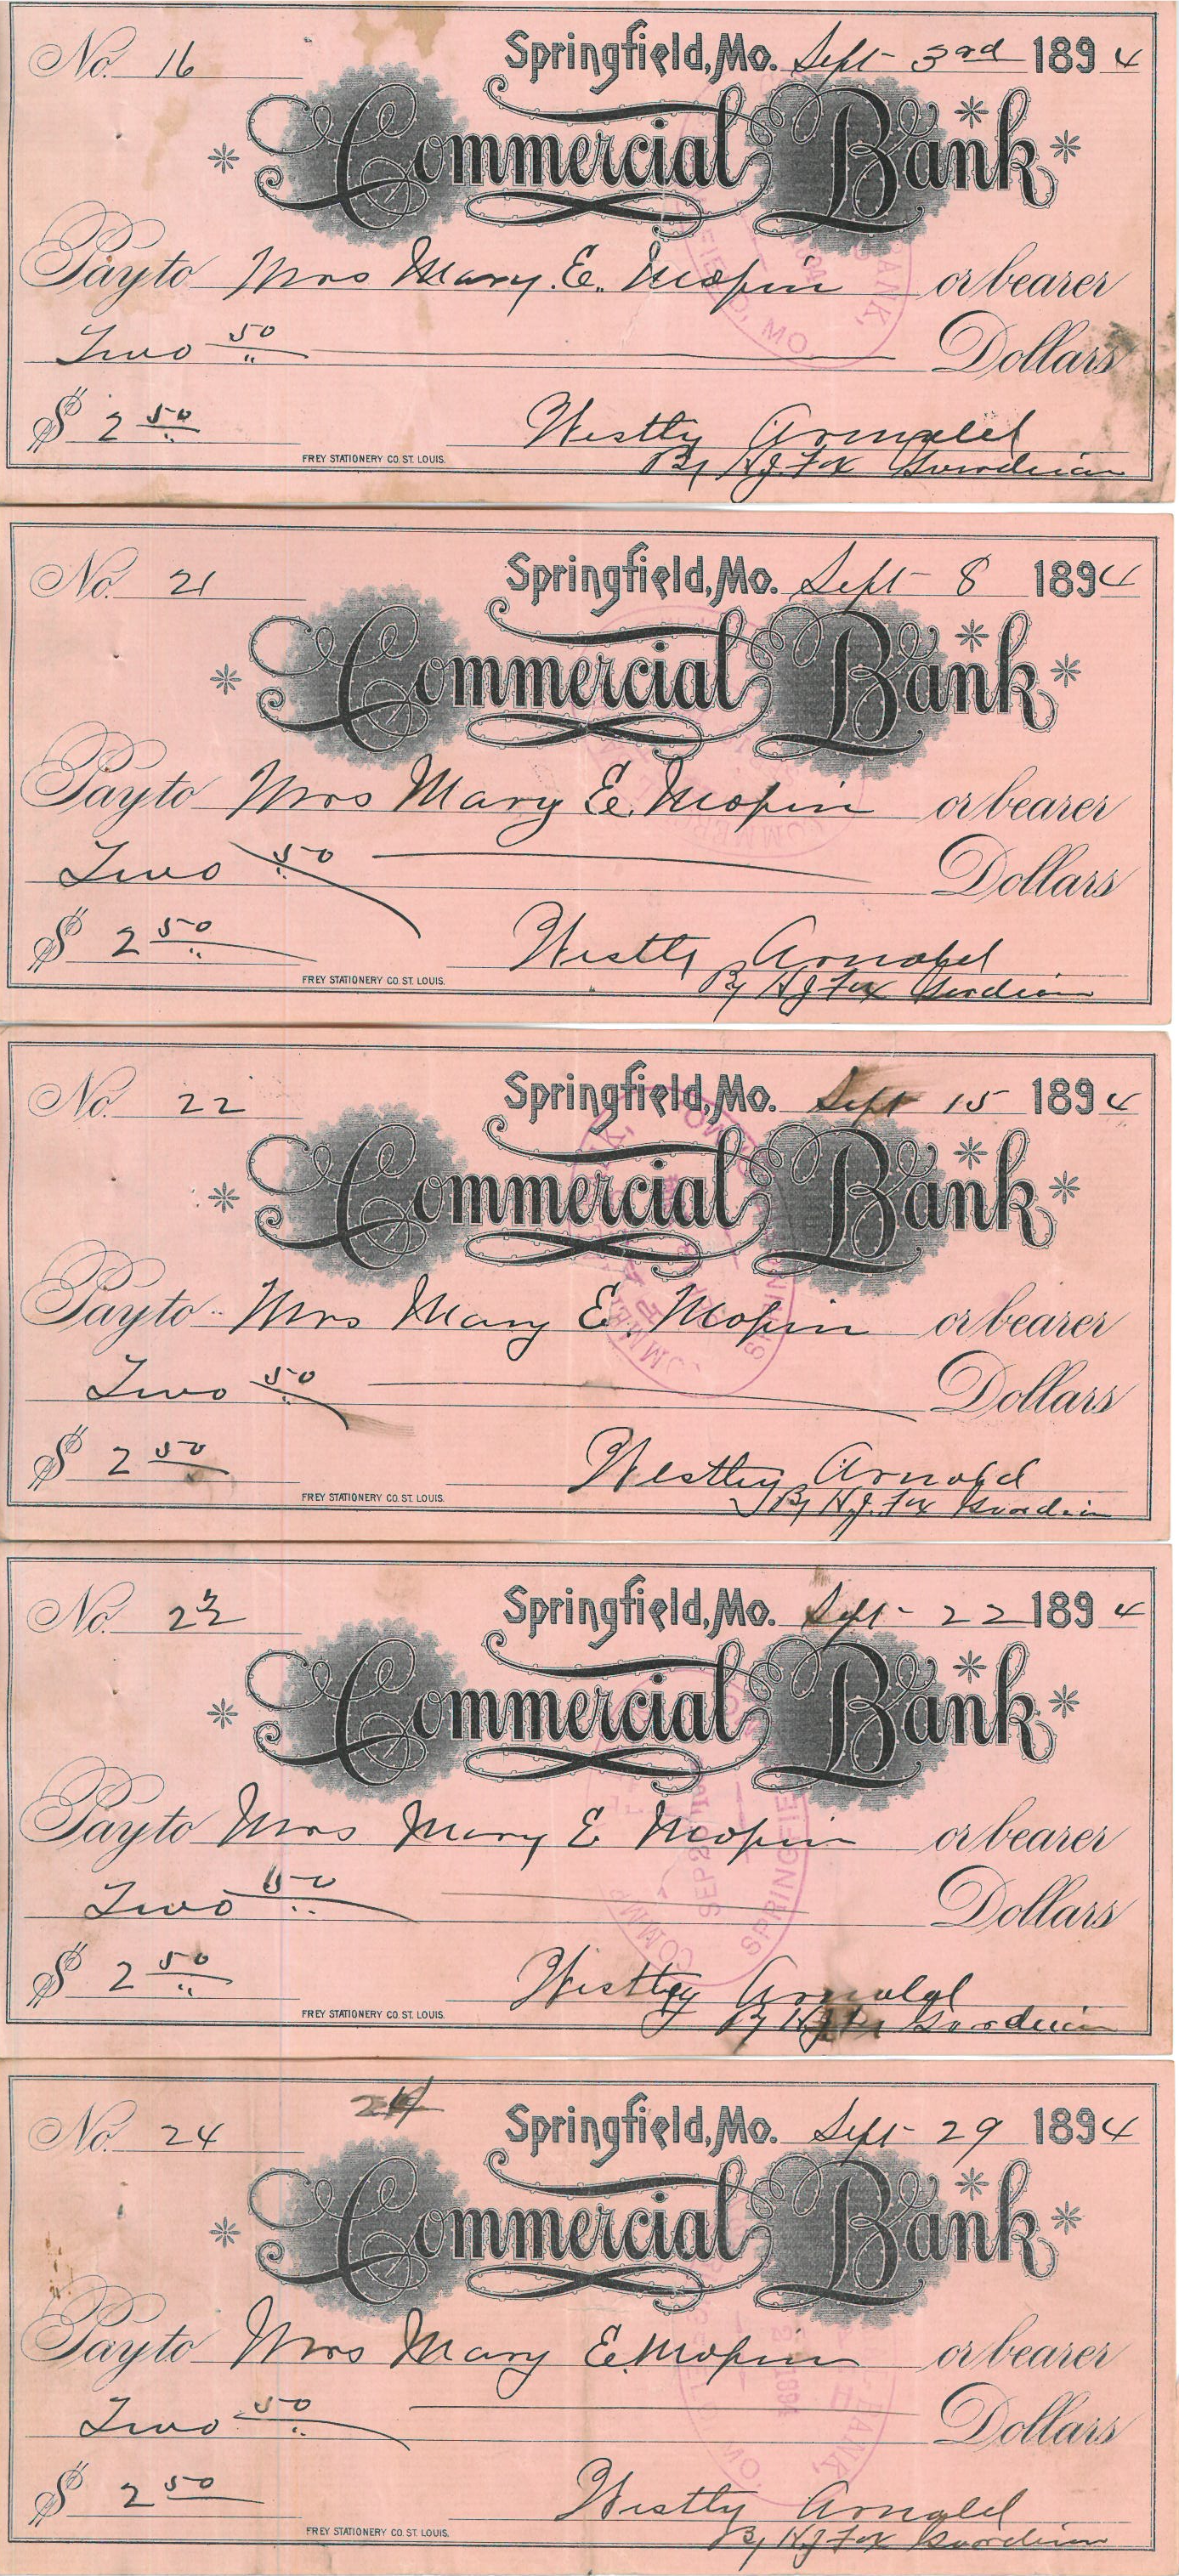 No. 16 Springfield, Mo. Sept 3rd 1894
Commercial Bank
Pay to Mrs Mary. E. Mopin or bearer
Two 50 Dollars
$ 2 50
Westly Arnald
FREY STATIONERY CO. ST. LOUIS.
By H.J. Fox Guardian
BANK,
FIELD, MO
No. 21 Springfield, Mo. Sept 8 1894
Commercial Bank
Pay to Mrs Mary E. Mopin or bearer
Two 50 Dollars
$ 2 50
Westly Arnald
FREY STATIONERY CO. ST. LOUIS.
By HJ Fox Guardian
No. 22 Springfield, Mo. Sept 15 1894
Commercial Bank
Pay to Mrs Mary E. Mopin or bearer
Two 50 Dollars
$ 2 50
Westley Arnald
FREY STATIONERY CO. ST. LOUIS.
By H.J. Fox Guardian
No. Springfield, Mo. Sept - 22 1894
Commercial Bank
Pay to Mrs Mary E Mopin or bearer
Two 50 Dollars
$ 2 50
Westley Arnald
FREY STATIONERY CO. ST. LOUIS.
By Guardian
24
No. 24 Springfield, Mo. Sept - 29 1894
Commercial Bank
Pay to Mrs Mary E. Mopin or bearer
Two 50 Dollars
$ 2 50
Westly Arnald
FREY STATIONERY CO. ST. LOUIS.
By HJ Fox Guardian